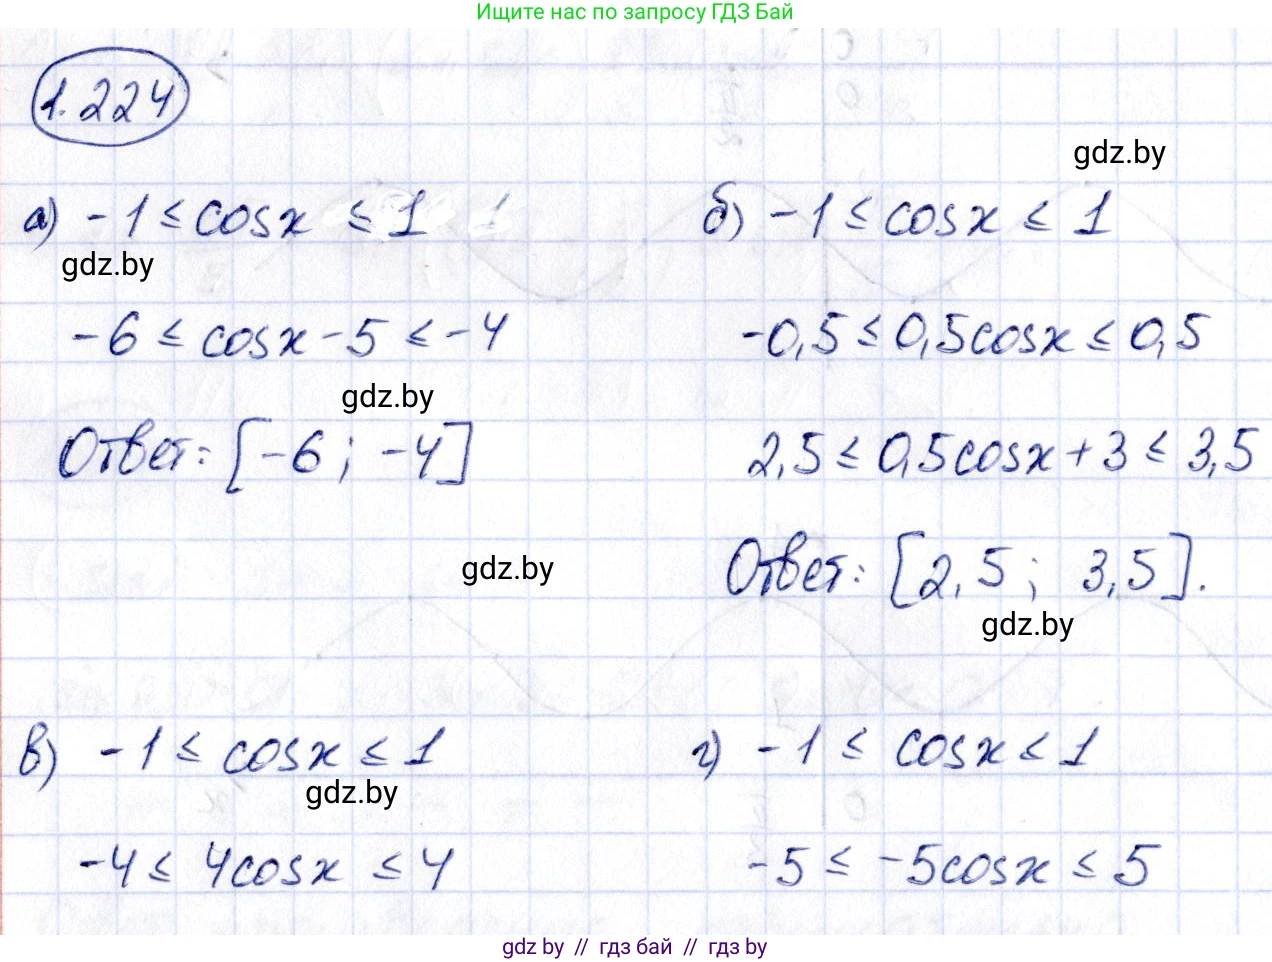 Ищите нас по запросу ГДЗ Бай
1.224
gdz.by
а) -1 ≤ cosx ≤ 1
gdz.by
-6 ≤ cosx - 5 ≤ -4
gdz.by
Ответ: [-6; -4]
б) -1 ≤ cosx ≤ 1
-0,5 ≤ 0,5cosx ≤ 0,5
2,5 ≤ 0,5cosx + 3 ≤ 3,5
gdz.by
Ответ: [2,5; 3,5].
gdz.by
в) -1 ≤ cosx ≤ 1
gdz.by
-4 ≤ 4cosx ≤ 4
г) -1 ≤ cosx ≤ 1
-5 ≤ -5cosx ≤ 5
gdz by // гдз бай // гдз by